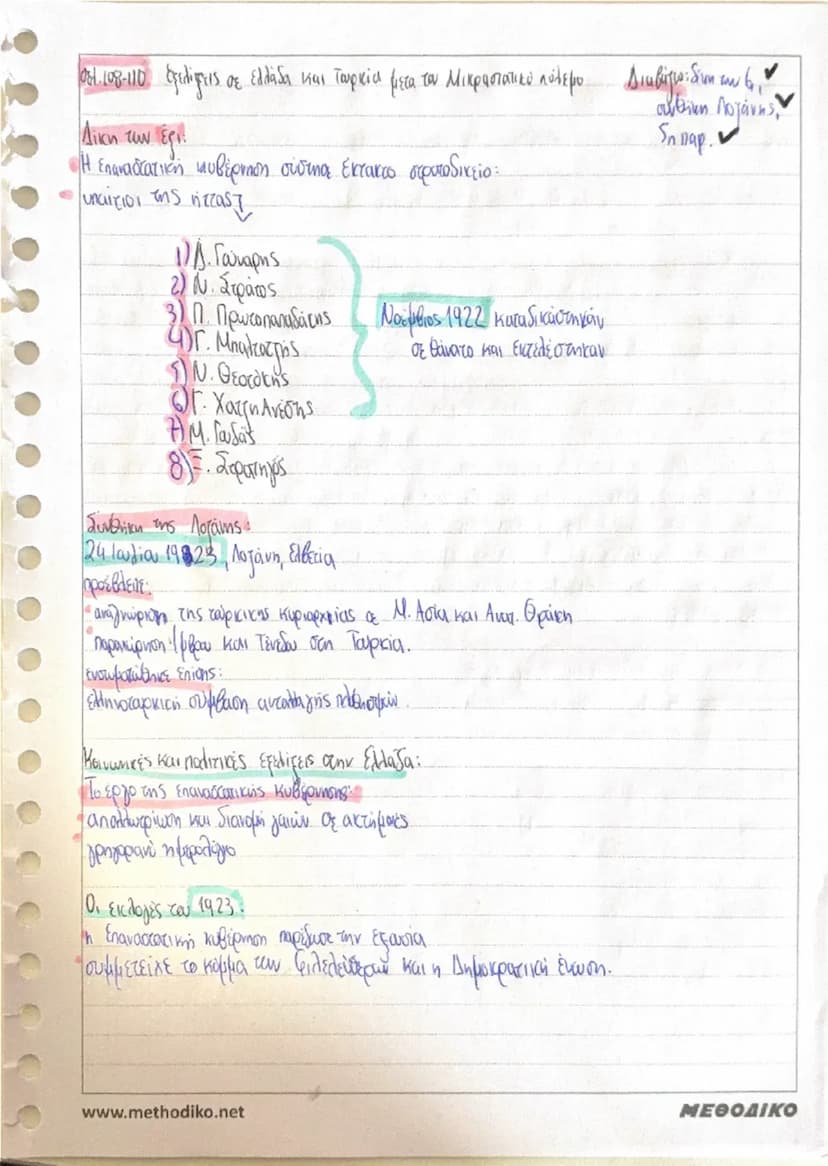 σελ.108-110 Εξελίξεις σε Ελλάδα και Τουρκία μετα τον Μικρασιατικό πόλεμο
Διαβάζω: δίκη των 6, ✔
συνθήκη Λοζάνης, ✔
5η παρ. ✔
Δίκη των έξι:
Η Επαναστατική κυβέρνηση σύστησε έκτακτο στρατοδικείο:
υπαίτιοι της ήττας
1) Δ. Γούναρης
2) Ν. Στράτος
3) Π. Πρωτοπαπαδάκης
4) Γ. Μπαλτατζής
5) Ν. Θεοτόκης
6) Γ. Χατζηανέστης
7) Μ. Γούδας
8) Ξ. Στρατηγός
Νοέμβριος 1922 καταδικάστηκαν
σε θάνατο και εκτελέστηκαν
Συνθήκη της Λοζάνης:
24 Ιουλίου 1923, Λοζάνη, Ελβετία
προέβλεπε:
αναγνώριση της τουρκικής κυριαρχίας σε Μ. Ασία και Ανατ. Θράκη
παραχώρηση Ίμβρου και Τένεδου στη Τουρκία.
ενσωματώθηκε επίσης:
ελληνοτουρκική σύμβαση ανταλλαγής πληθυσμών.
Κοινωνικές και πολιτικές εξελίξεις στην Ελλάδα:
Το έργο της επαναστατικής κυβέρνησης:
απαλλοτρίωση και διανομή γαιών σε ακτήμονες
γρηγοριανό ημερολόγιο
Οι εκλογές του 1923:
η Επαναστατική κυβέρνηση παρέδωσε την εξουσία
συμμετείχε το κόμμα των Φιλελεύθερων και η Δημοκρατική ένωση.
www.methodiko.net
ΜΕΘΟΔΙΚΟ